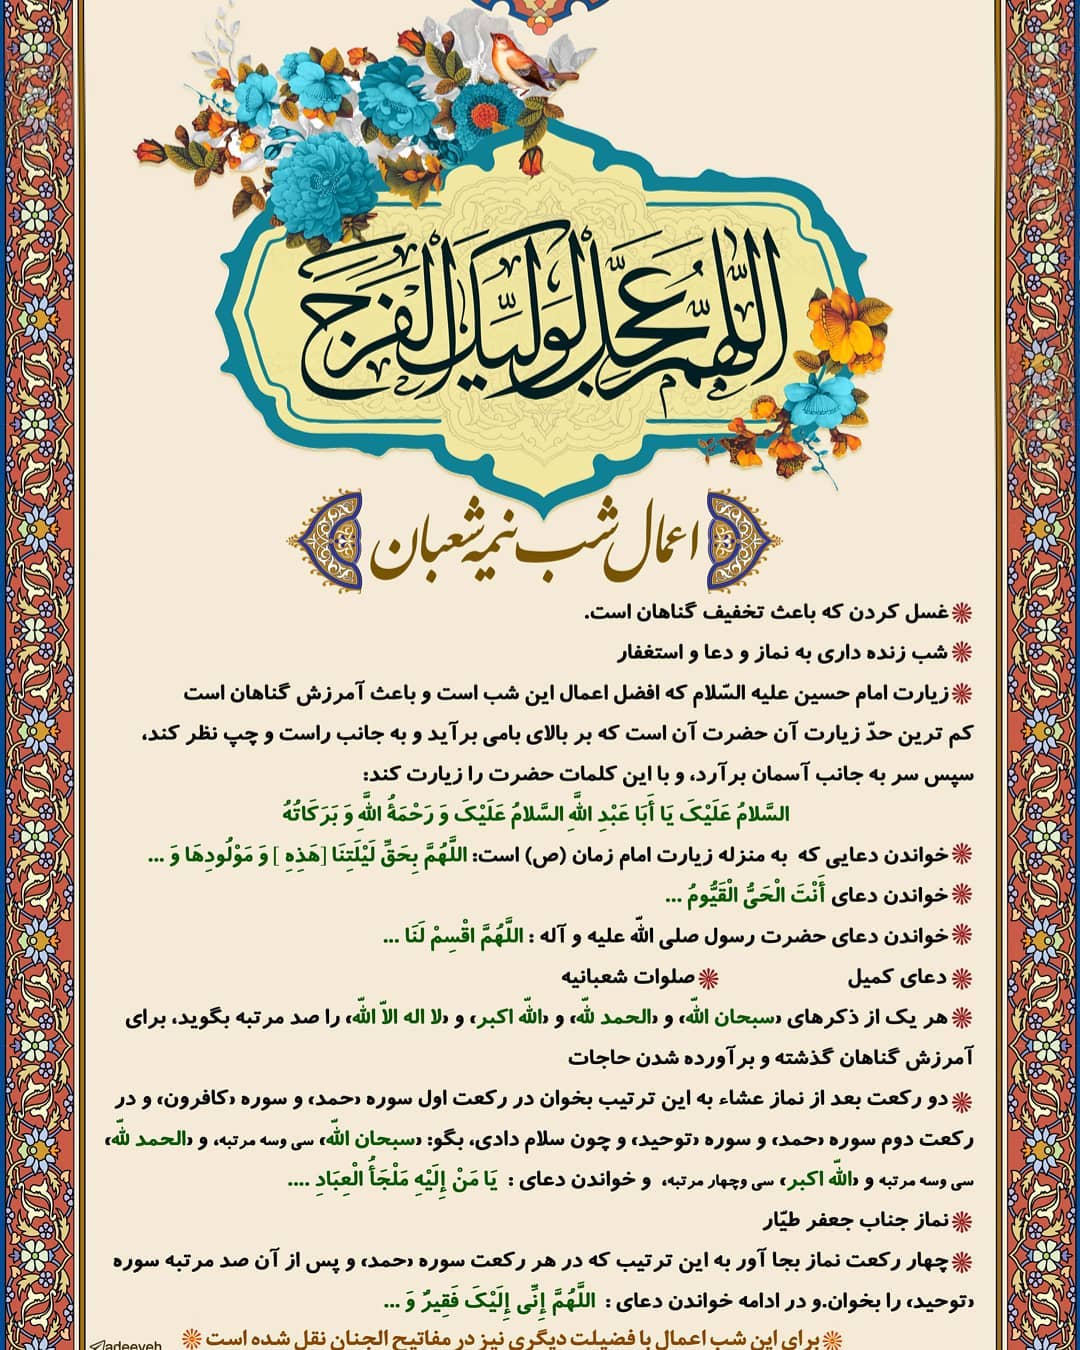 اللّهُمَّ عَجِّل لِوَلیِّکَ الفَرَج
اعمال شب نیمه شعبان
غسل کردن که باعث تخفیف گناهان است.
شب زنده داری به نماز و دعا و استغفار
زیارت امام حسین علیه السّلام که افضل اعمال این شب است و باعث آمرزش گناهان است
کم ترین حدّ زیارت آن حضرت آن است که بر بالای بامی برآید و به جانب راست و چپ نظر کند،
سپس سر به جانب آسمان برآرد، و با این کلمات حضرت را زیارت کند:
السَّلامُ عَلَیْکَ یَا أَبَا عَبْدِ اللَّهِ السَّلامُ عَلَیْکَ وَ رَحْمَةُ اللَّهِ وَ بَرَکَاتُهُ
خواندن دعایی که به منزله زیارت امام زمان (ص) است: اللَّهُمَّ بِحَقِّ لَیْلَتِنَا [هَذِهِ ] وَ مَوْلُودِهَا وَ ...
خواندن دعای أَنْتَ الْحَیُّ الْقَیُّومُ ...
خواندن دعای حضرت رسول صلی الله علیه و آله : اللَّهُمَّ اقْسِمْ لَنَا ...
دعای کمیل صلوات شعبانیه
هر یک از ذکرهای «سبحان الله» و «الحمد لله» و «الله اکبر» و «لا اله الاّ الله» را صد مرتبه بگوید، برای
آمرزش گناهان گذشته و برآورده شدن حاجات
دو رکعت بعد از نماز عشاء به این ترتیب بخوان در رکعت اول سوره «حمد» و سوره «کافرون» و در
رکعت دوم سوره «حمد» و سوره «توحید» و چون سلام دادی، بگو: «سبحان الله» سی وسه مرتبه، و «الحمد لله»
سی وسه مرتبه و «الله اکبر» سی وچهار مرتبه، و خواندن دعای : یَا مَنْ إِلَیْهِ مَلْجَأُ الْعِبَادِ ....
نماز جناب جعفر طیّار
چهار رکعت نماز بجا آور به این ترتیب که در هر رکعت سوره «حمد» و پس از آن صد مرتبه سوره
«توحید» را بخوان.و در ادامه خواندن دعای : اللَّهُمَّ إِنِّی إِلَیْکَ فَقِیرٌ وَ ...
برای این شب اعمال با فضیلت دیگری نیز در مفاتیح الجنان نقل شده است
adeeyeh